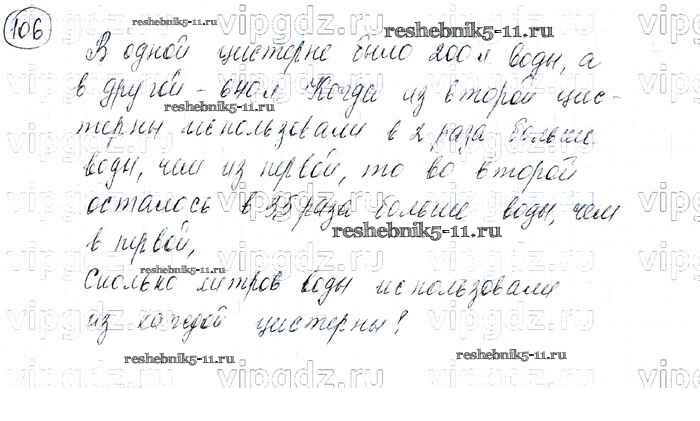 106
В одной цистерне было 200 л воды, а
в другой - 640 л. Когда из второй цис-
терны использовали в 2 раза больше
воды, чем из первой, то во второй
осталось в 3,5 раза больше воды, чем
в первой,
Сколько литров воды использовали
из каждой цистерны?
reshebnik5-11.ru
reshebnik5-11.ru
reshebnik5-11.ru
reshebnik5-11.ru
reshebnik5-11.ru
reshebnik5-11.ru
reshebnik5-11.ru
reshebnik5-11.ru
vipgdz.ru
vipgdz.ru
vipgdz.ru